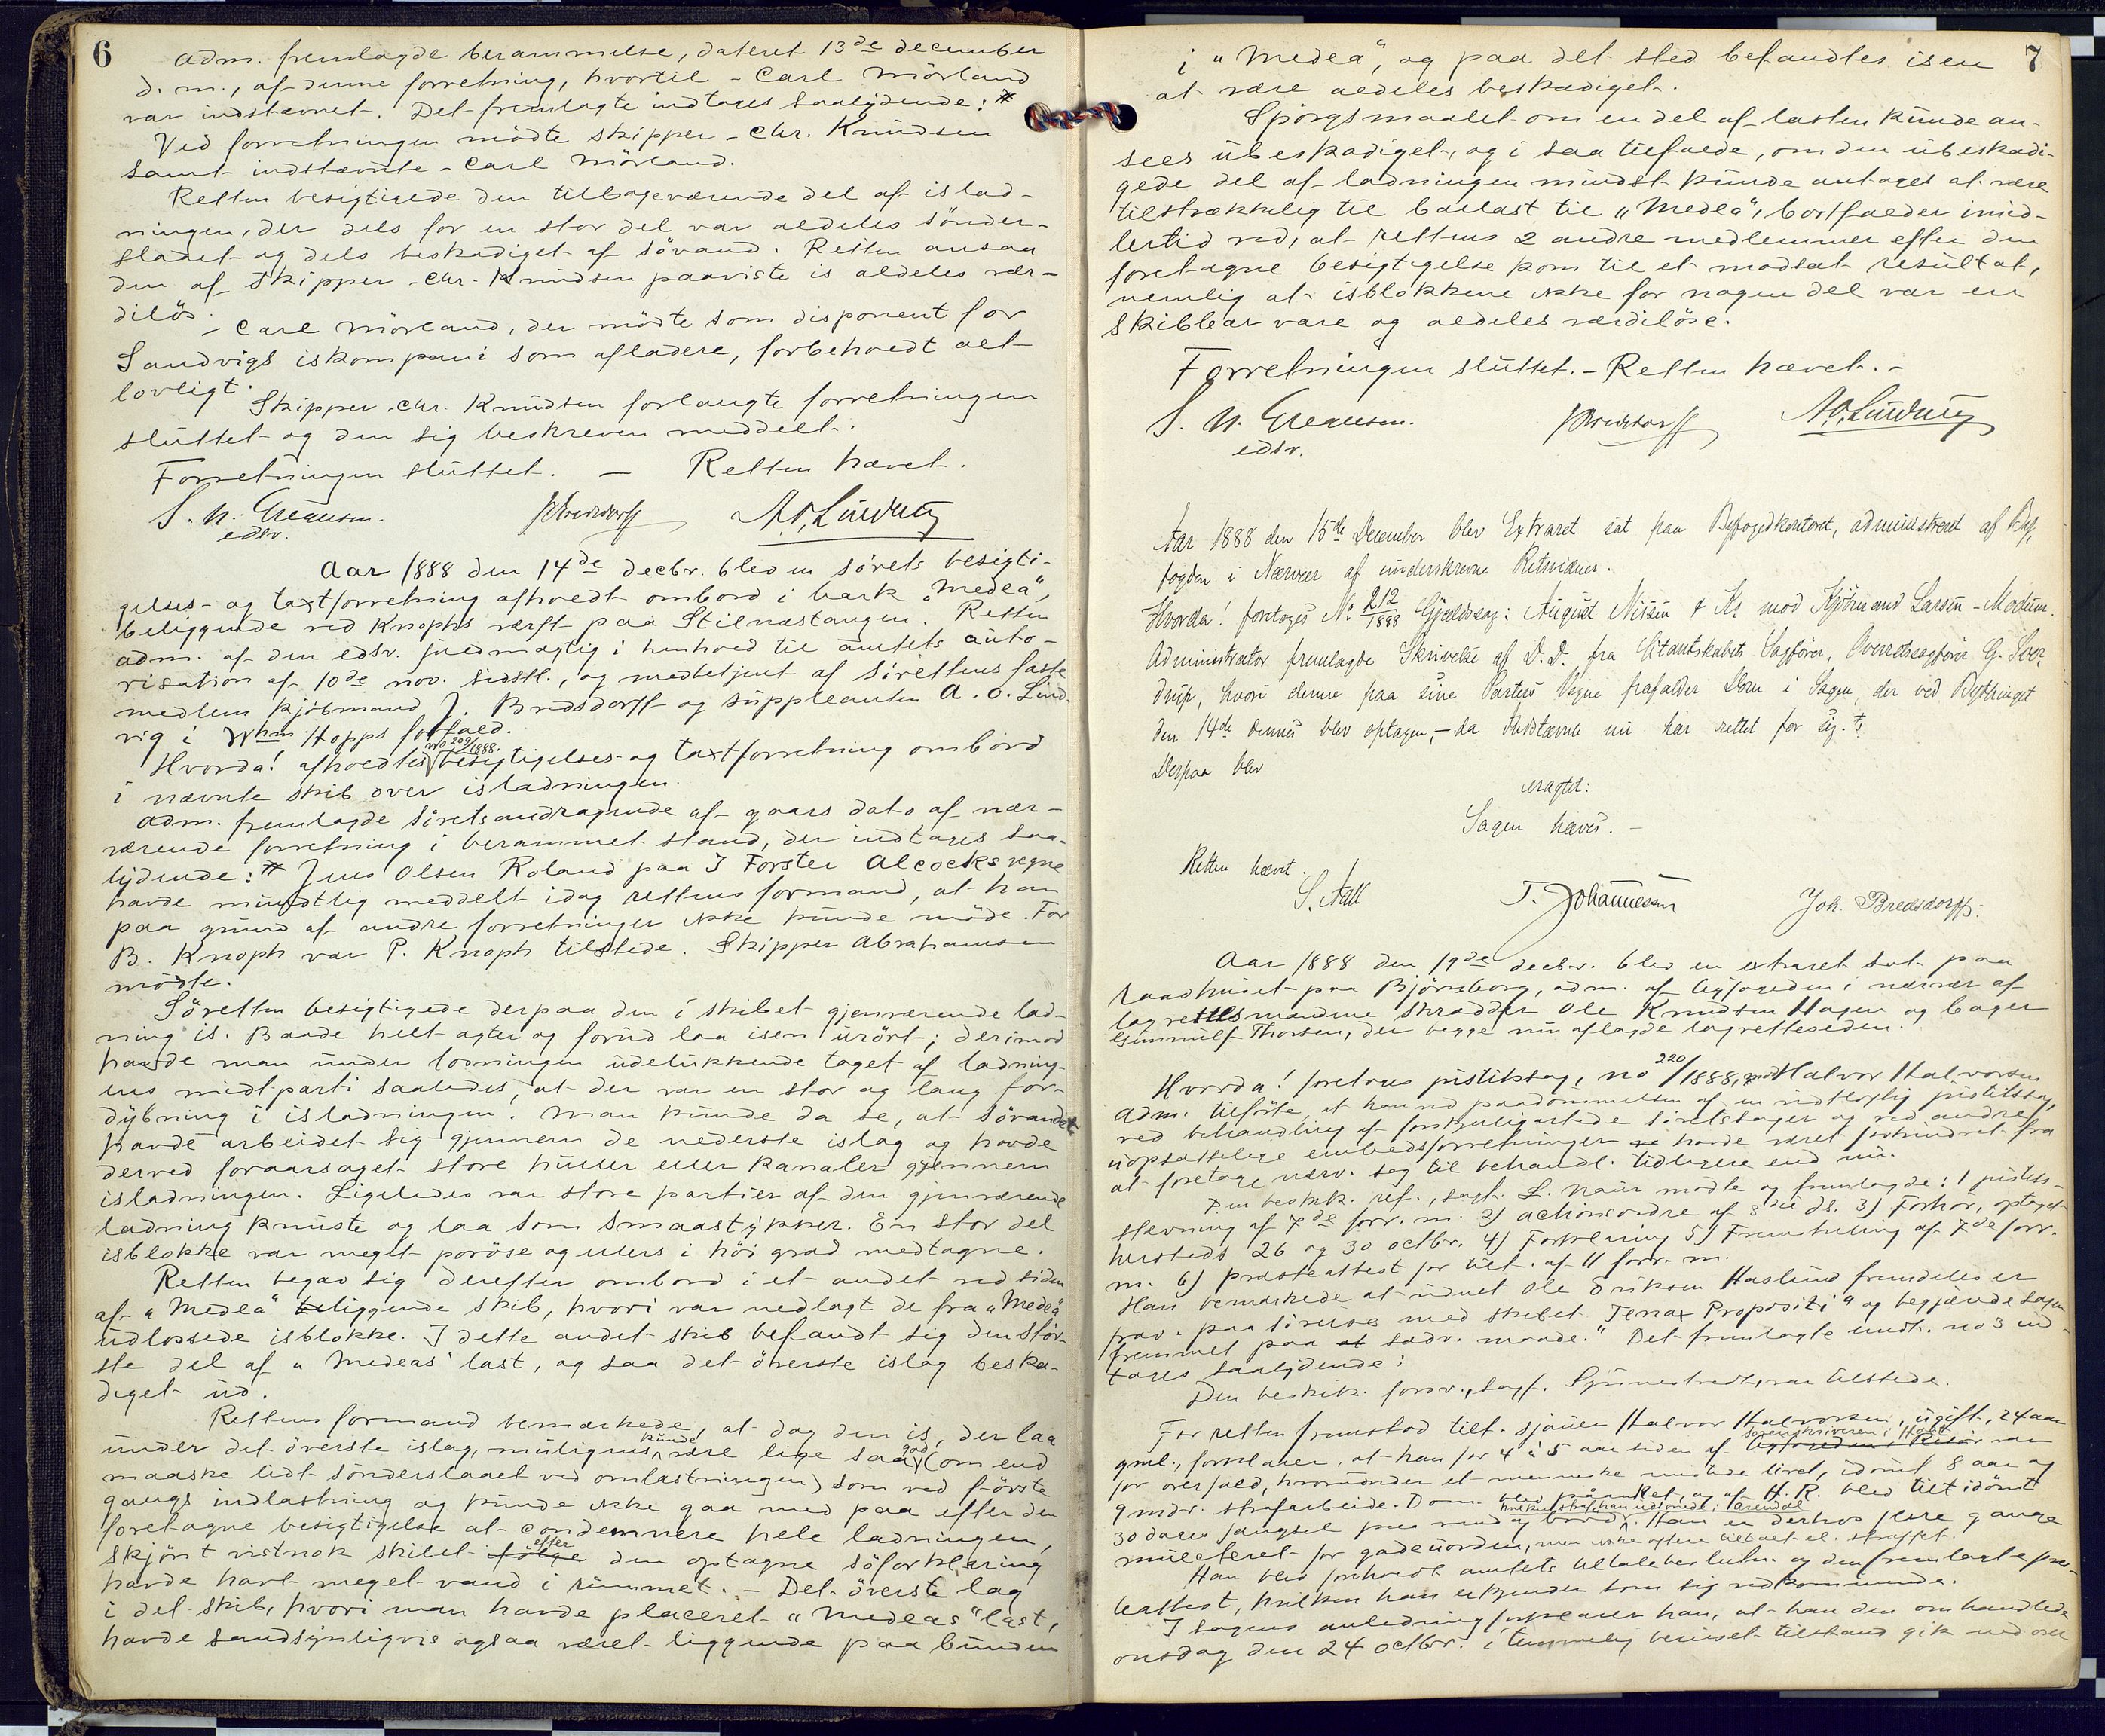 6
Adm. fremlagde berammelse, dateret 13de december
d. m., af denne forretning, hvortil Carl Mörland
var indstævnet. Det fremlagte indtages saalydende: #
Ved forretningen mödte skipper Chr. Knudsen
samt indstævnte Carl Mörland.
Retten besigtigede den tilbageværende del af islad-
ningen, der dels for en stor del var aldeles sönder-
slaaet og dels beskadiget af sövand. Retten ansaa
den af skipper Chr. Knudsen paaviste is aldeles vær-
dilös.
Carl Mörland, der mödte som disponent for
Sandvigs iskompani som afladere, forbeholdt alt
lovligt.
Skipper Chr. Knudsen forlangte forretningen
sluttet og den sig beskreven meddelt.
Forretningen sluttet. — Retten hævet.
S. N. Greguesen. JBredsdorff A.O. Lindvig
edsv.
Aar 1888 den 14de decbr. blev en sörets besigti-
gelses- og taxtforretning afholdt ombord i bark "Medea",
beliggende ved Knophs værft paa Stilnæstangen. Retten
adm. af den edsv. fuldmægtig i henhold til amtets auto-
risation af 10de nov. sidstl., og medbetjent af sörettens faste
medlem kjöbmand J. Bredsdorff og suppleanten A. O. Lind-
vig i Whm Hopps forfald.
Hvorda! afholdtes No 209/1888. besigtigelses- og taxtforretning ombord
i nævnte skib over isladningen.
Adm. fremlagde söretsandragende af gaars dato af nær-
værende forretning i berammet stand, der indtages saa-
lydende: # Jens Olsen Roland paa J Forster Alcocks vegne
havde mundtlig meddelt idag rettens formand, at han
paa grund af andre forretninger ikke kunde möde. For
B. Knoph var P. Knoph tilstede. Skipper Abrahamsen
mödte.
Söretten besigtigede derpaa den i skibet gjenværende lad-
ning is. Baade helt agter og forud laa isen urört; derimod
havde man under losningen udelukkende taget af ladning-
ens midtparti saaledes, at der var en stor og lang for-
dybning i isladningen. Man kunde da se, at sövandet
havde arbeidet sig gjennem de nederste islag og havde
derved foraarsaget store huller eller kanaler gjennem
isladningen. Ligeledes var store partier af den gjenværende
ladning knuste og laa som smaastykker. En stor del
isblokke var meget poröse og ellers i höi grad medtagne.
Retten begav sig derefter ombord i et andet ved siden
af "Medea" liggende skib, hvori var nedlagt de fra "Medea"
udlossede isblokke. I dette andet skib befandt sig den stör-
ste del af "Medeas" last, og saa det överste islag beska-
diget ud.
Rettens formand bemærkede, at dog den is, der laa
under det överste islag, muligens kunde være lige saa god (om end
maaske lidt sönderslaaet ved omlastningen) som ved förste
gangs indlastning og kunde ikke gaa med paa efter den
foretagne besigtigelse at condemnere hele ladningen,
skjönt vistnok skibet efter den optagne söforklaring
havde havt meget vand i rummet. — Det överste lag
i det skib, hvori man havde placeret "Medeas" last,
havde sandsynligvis ogsaa været liggende paa bunden
7
i "Medea", og paa det sted befandtes isen
at være aldeles beskadiget.
Spörgsmaalet om en del af lasten kunde an-
sees ubeskadiget, og i saa tilfælde, om den ubeskadi-
gede del af ladningen mindst kunde antages at være
tilstrækkelig til ballast til "Medea", bortfalder imid-
lertid ved, at rettens 2 andre medlemmer efter den
foretagne besigtigelse kom til et modsat resultat,
nemlig at isblokkene ikke for nogen del var en
skibbar vare og aldeles værdilöse.
Forretningen sluttet. — Retten hævet. —
S. N. Greguesen. JBredsdorff A.O. Lindvig
edsv.
Aar 1888 den 15de December blev Extraret sat paa Byfogedkontoret, administreret af By-
fogden i Nærvær af underskrevne Retsvidner.
Hvorda! foretoges No 212/1888 Gjældssag: August Nissen & Ko mod Kjöbmand Larsen-Modum.
Administrator fremlagde Skrivelse af D.D. fra Citantskabets Sagförer, Overretssagförer G. Sver-
drup, hvori denne paa sine Parters Vegne frafalder Dom i Sagen, der ved Bythinget
den 14de dennes blev optagen, — da Indstævnte nu har rettet for sig. #
Derpaa blev
eragtet:
Sagen hæves. —
Retten hævet.
S. Aall T. Johannessen Joh. Bredsdorff.
Aar 1888 den 19de decbr. blev en extraret sat paa
raadhuset paa Björnsborg, adm. af byfogeden i nærvær af
lagrettesmændene skrædder Ole Knudsen Hagen og bager
Gunnulf Thorsen, der begge nu aflagde lagretteseden.
Hvorda! foretoges justitssag, no 220/1888, mod Halvor Halvorsen
Adm. tilförte, at han ved paadömmelsen af en vidtlöftig justitssag,
ved behandling af forskjelligartede söretssager og ved andre
uopsættelige embedsforretninger havde været forhindret fra
at foretage nærv. sag til behandl. tidligere end nu.
Den beskik. ref., sagf. L. Naur mödte og fremlagde: 1 justits-
stevning af 7de forr. m. 2) actionsordre af 3die ds. 3) Forhör, optaget
hersteds 26 og 30 octbr. 4) Forklaring 5) Fremstilling af 7de forr.
m. 6) præsteattest for tilt. af 11 forr. m.
Han bemærkede at vidnet Ole Eriksen Haslund fremdeles er
frav. paa söreise med skibet "Tenax Propositi" og begjærede sagen
fremmet paa sædv. maade. Det fremlagte undt. no 3 ind-
tages saalydende:
Den beskik. forsv., sagf. , var tilstede.
For retten fremstod tilt. sjauer Halvor Halvorsen, ugift, 24 aar
gml., forklarer, at han for 4 à 5 aar siden af sorenskriveren i Holt var
for overfald, hvorunder et menneske mistede livet, idömt 8 aar og
9 mdr. strafarbeide. Dom. blev paaanket, og af H. R. blev tilt idömt
30 dages fængsel paa vand og bröd, hvilken straf han udsonede i Arendal. Han er derhos flere gange
mulcteret for gadeuorden, men ikke oftere tiltalt el. straffet.
Han blev foreholdt amtets tiltalebeslutn. og den fremlagte præ-
steattest, hvilken han erkjender som sig vedkommende.
I sagens anledning forklarer han, at han den omhandlede
onsdag den 24 octbr. i temmelig beruset tilstand gik ned over